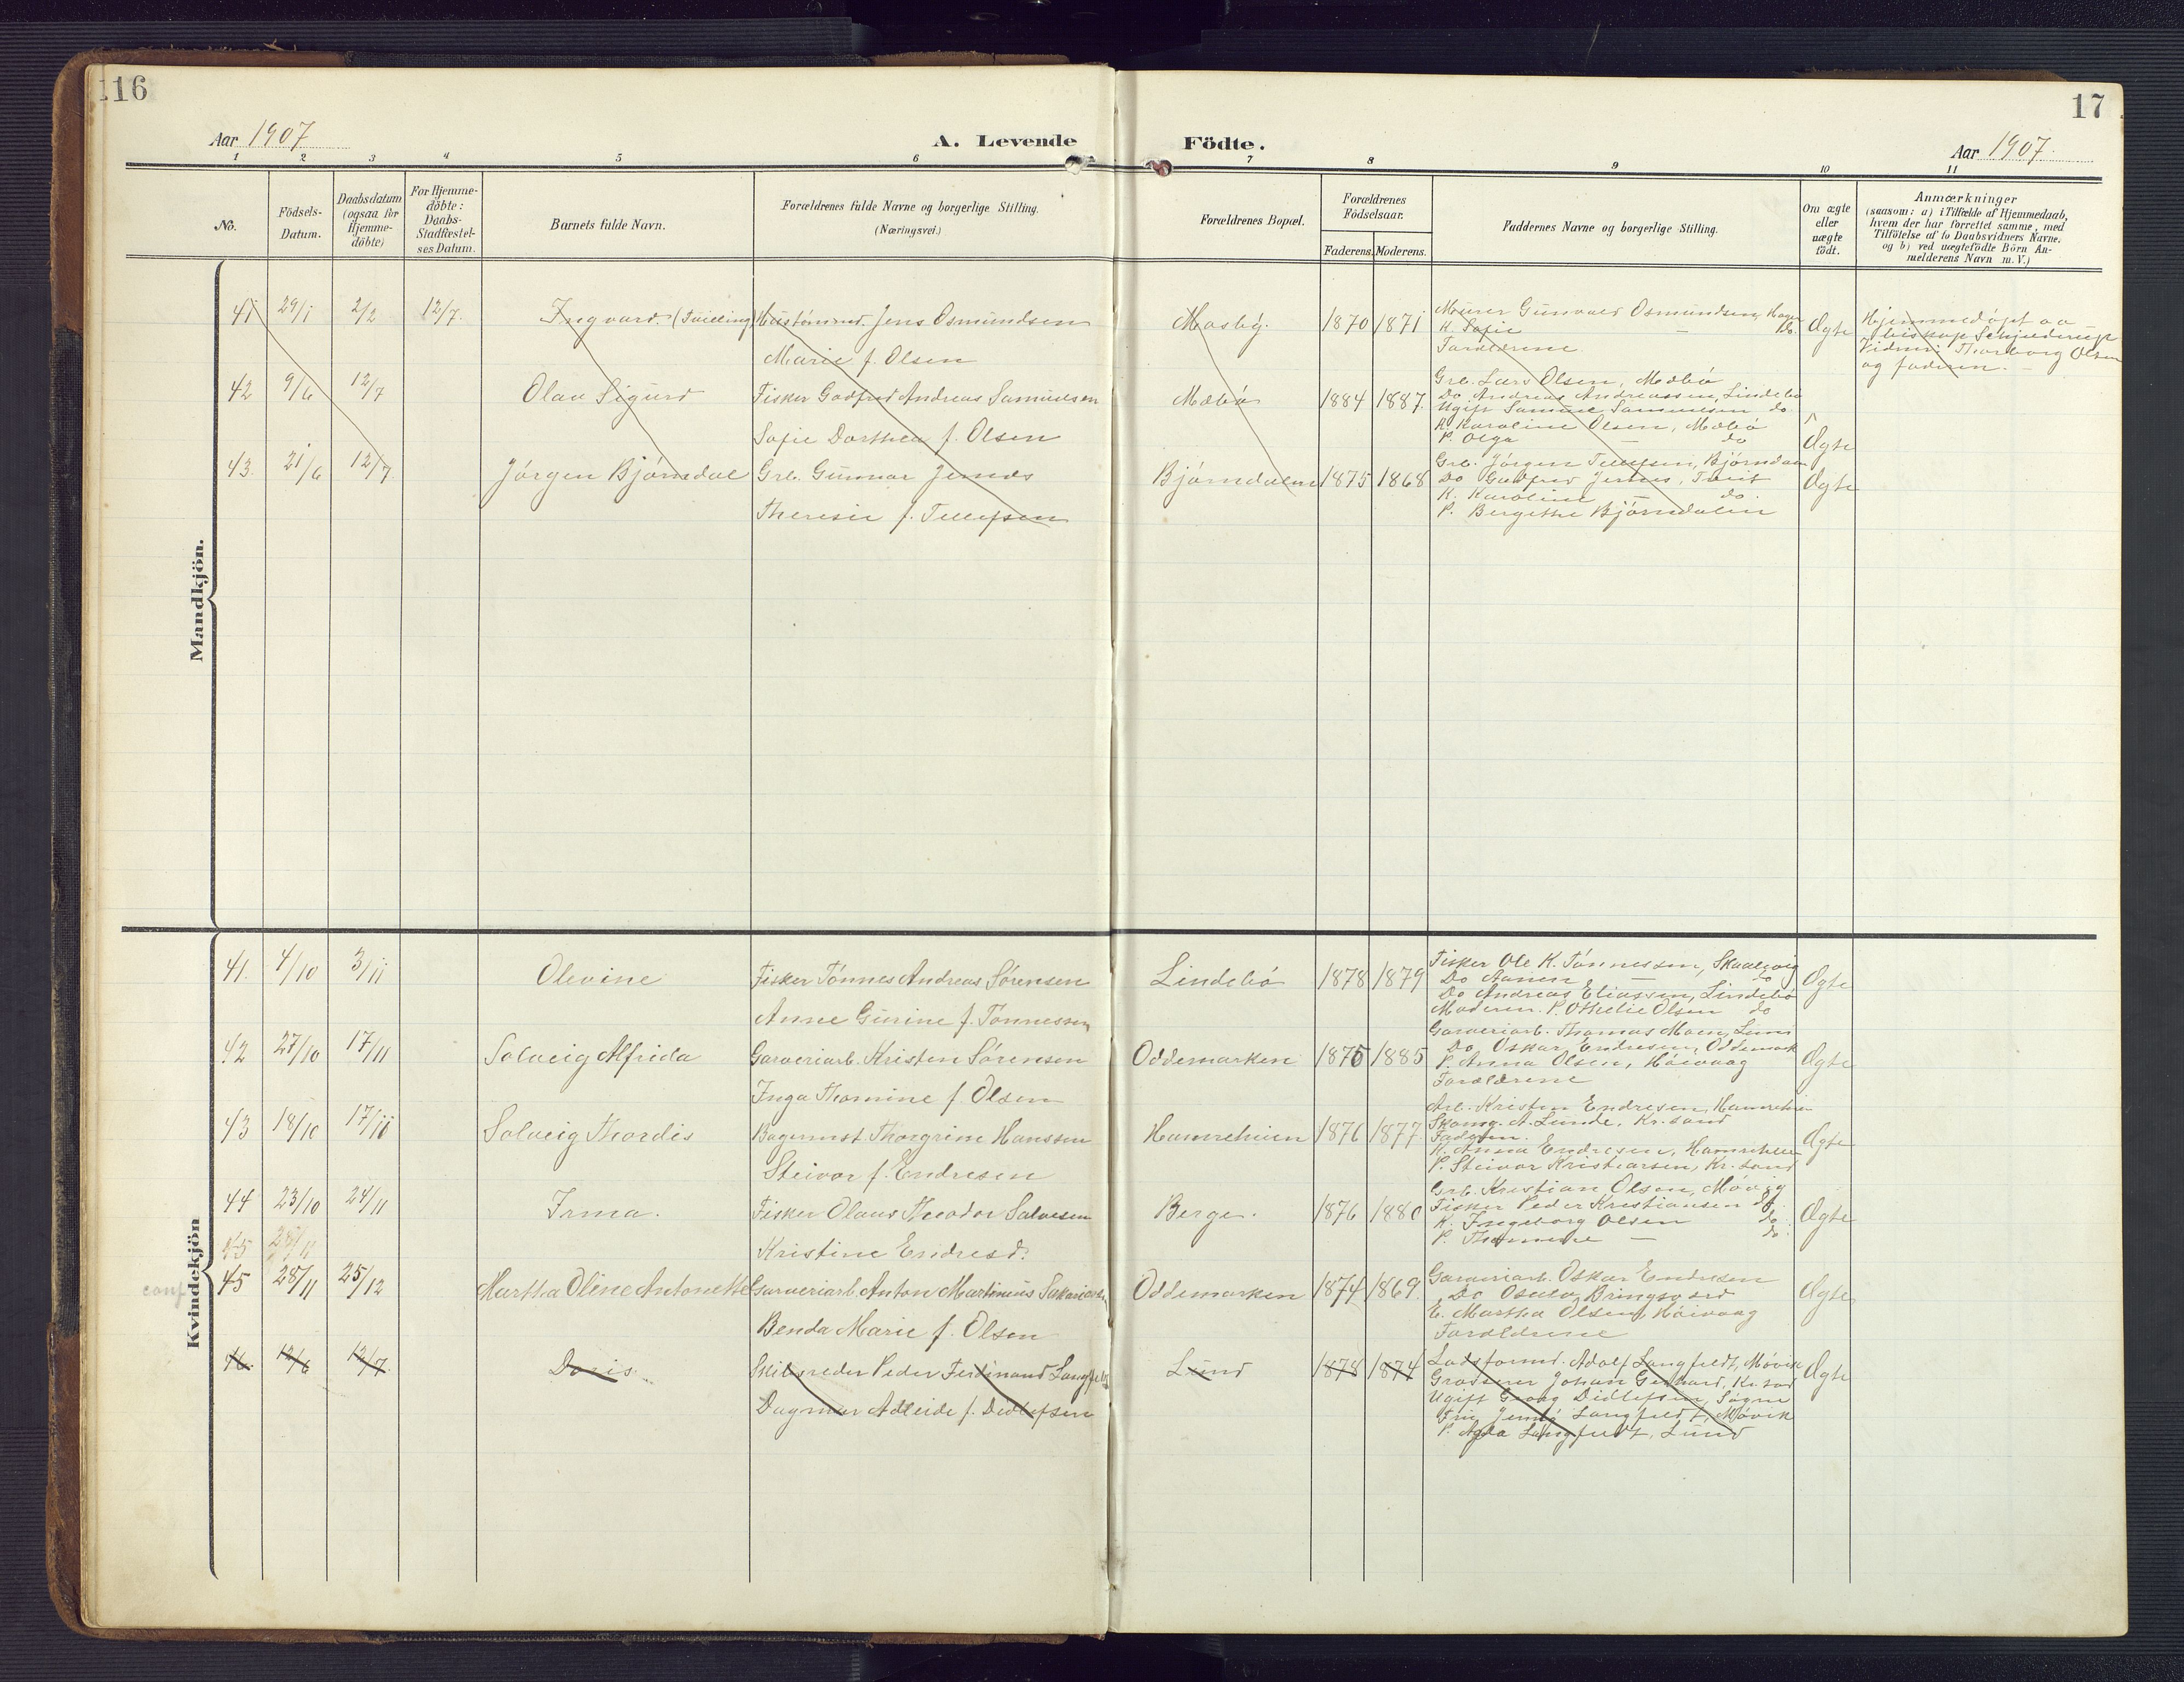 116
17
Aar 1907
A. Levende
Födte.
Aar 1907.
1 2 3 4 5 6 7 8 9 10 11
No.
Födsels-
Datum.
Daabsdatum
(ogsaa for
Hjemme-
döbte)
For Hjemme-
döbte:
Daabs-
Stadfæstel-
ses Datum.
Barnets fulde Navn.
Forældrenes fulde Navne og borgerlige Stilling.
(Næringsvei.)
Forældrenes Bopæl.
Forældrenes
Födselsaar.
Faderens. Moderens.
Faddernes Navne og borgerlige Stilling.
Om ægte
eller
uægte
födt.
Anmærkninger
(saasom: a) i Tilfælde af Hjemmedaab,
hvem der har forrettet samme, med
Tilföielse af to Daabsvidners Navne.
og b) ved uægtefödte Börn An-
melderens Navn m. V.)
Mandkjön.
41 29/1 2/2 12/7. Ingvard. (Tvilling) Hustømmd. Jens Osmundsen
Marie f. Olsen
Mosby. 1870 1871
Murer Gunvald Osmundsen,
K. Sofie — Do.
Forældrene
Ægte
Hjemmedøpt av
biskop Schjelderup
Vidner: Thorborg Olsen
og faderen. —
42 9/6 12/7 Olav Sigurd Fisker Godfred Andreas Samuelsen
Sofie Dorthea f. Olsen
Mæbø 1884 1887.
Grb. Lars Olsen, Mæbø
Do Andreas Andreassen, Lindebø
Ugift Samuel Samuelsen do
K. Karoline Olsen, Mæbø
P. Olga — do
Ægte
43. 21/6 12/7. Jørgen Bjørndal Grb. Gunnar Jernes
Theresie f. Tellefsen
Bjørndalen 1875 1868
Grb. Jørgen Tellefsen, Bjørndalen
Do Gudfred Jernes, Tveit
K. Karoline — do.
P. Bergethe Bjørndalen
Ægte
Kvindekjön
41. 4/10 3/11 Olevine Fisker Tønnes Andreas Sørensen
Anne Gurine f. Tønnessen
Lindebø 1878 1879
Fisker Ole K. Tønnessen, Skaalevig
Do Aanen — do
Do Andreas Eliassen, Lindebø
Moderen. P. Othelie Olsen do
Ægte
42 27/10 17/11 Solveig Alfrida Garveriarb. Kristen Sørensen
Inga Thomine f. Olsen
Oddemarken 1875 1885
Garveriarb. Thomas Moen, Lund
Do Oskar Endresen, Oddemark
P. Anna Olsen, Høivaag
Forældrene
Ægte
43 18/10 17/11 Solveig Thordis Bagermst. Thorgrim Hanssen
Steivor f. Endresen
Hamreheien 1876 1877
Arb. Kristen Endresen, Hamreheien
Skomg. A. Lunde, Kr.sand
Faderen.
K. Anna Endresen, Hamreheien
P. Steivor Kristiansen, Kr.sand
Ægte
44 23/10 24/11 Irma. Fisker Olaus Theodor Salvesen
Kristine Endresd.
Berge. 1876 1880
Grb. Kristian Olsen, Møvig
Fisker Peder Kristiansen do.
K. Ingeborg Olsen do.
P. Thomine — do.
Ægte
45 28/11
conf
45 28/11 25/12 Martha Oline Antonette Garveriarb. Anton Martinius Sakariassen
Benda Marie f. Olsen
Oddemarken 1874 1869.
Garveriarb. Oskar Endresen
Do Osuld Bringsværd
E. Martha Olsen, Høivaag
Forældrene
Ægte
46. 12/6 12/7. Doris Skibsreder Peder Ferdinand Langfeldt
Dagmar Adleide f. Didlefsen
Lund 1878 1874
Ladsformd. Adolf Langfeldt, Møvik
Grosserer Johan Gerhard, Kr.sand
Ugift Georg Didlefsen, Søgne
Fru Jenny Langfeldt, Møvik
P. Agda Langfeldt, Lund
Ægte